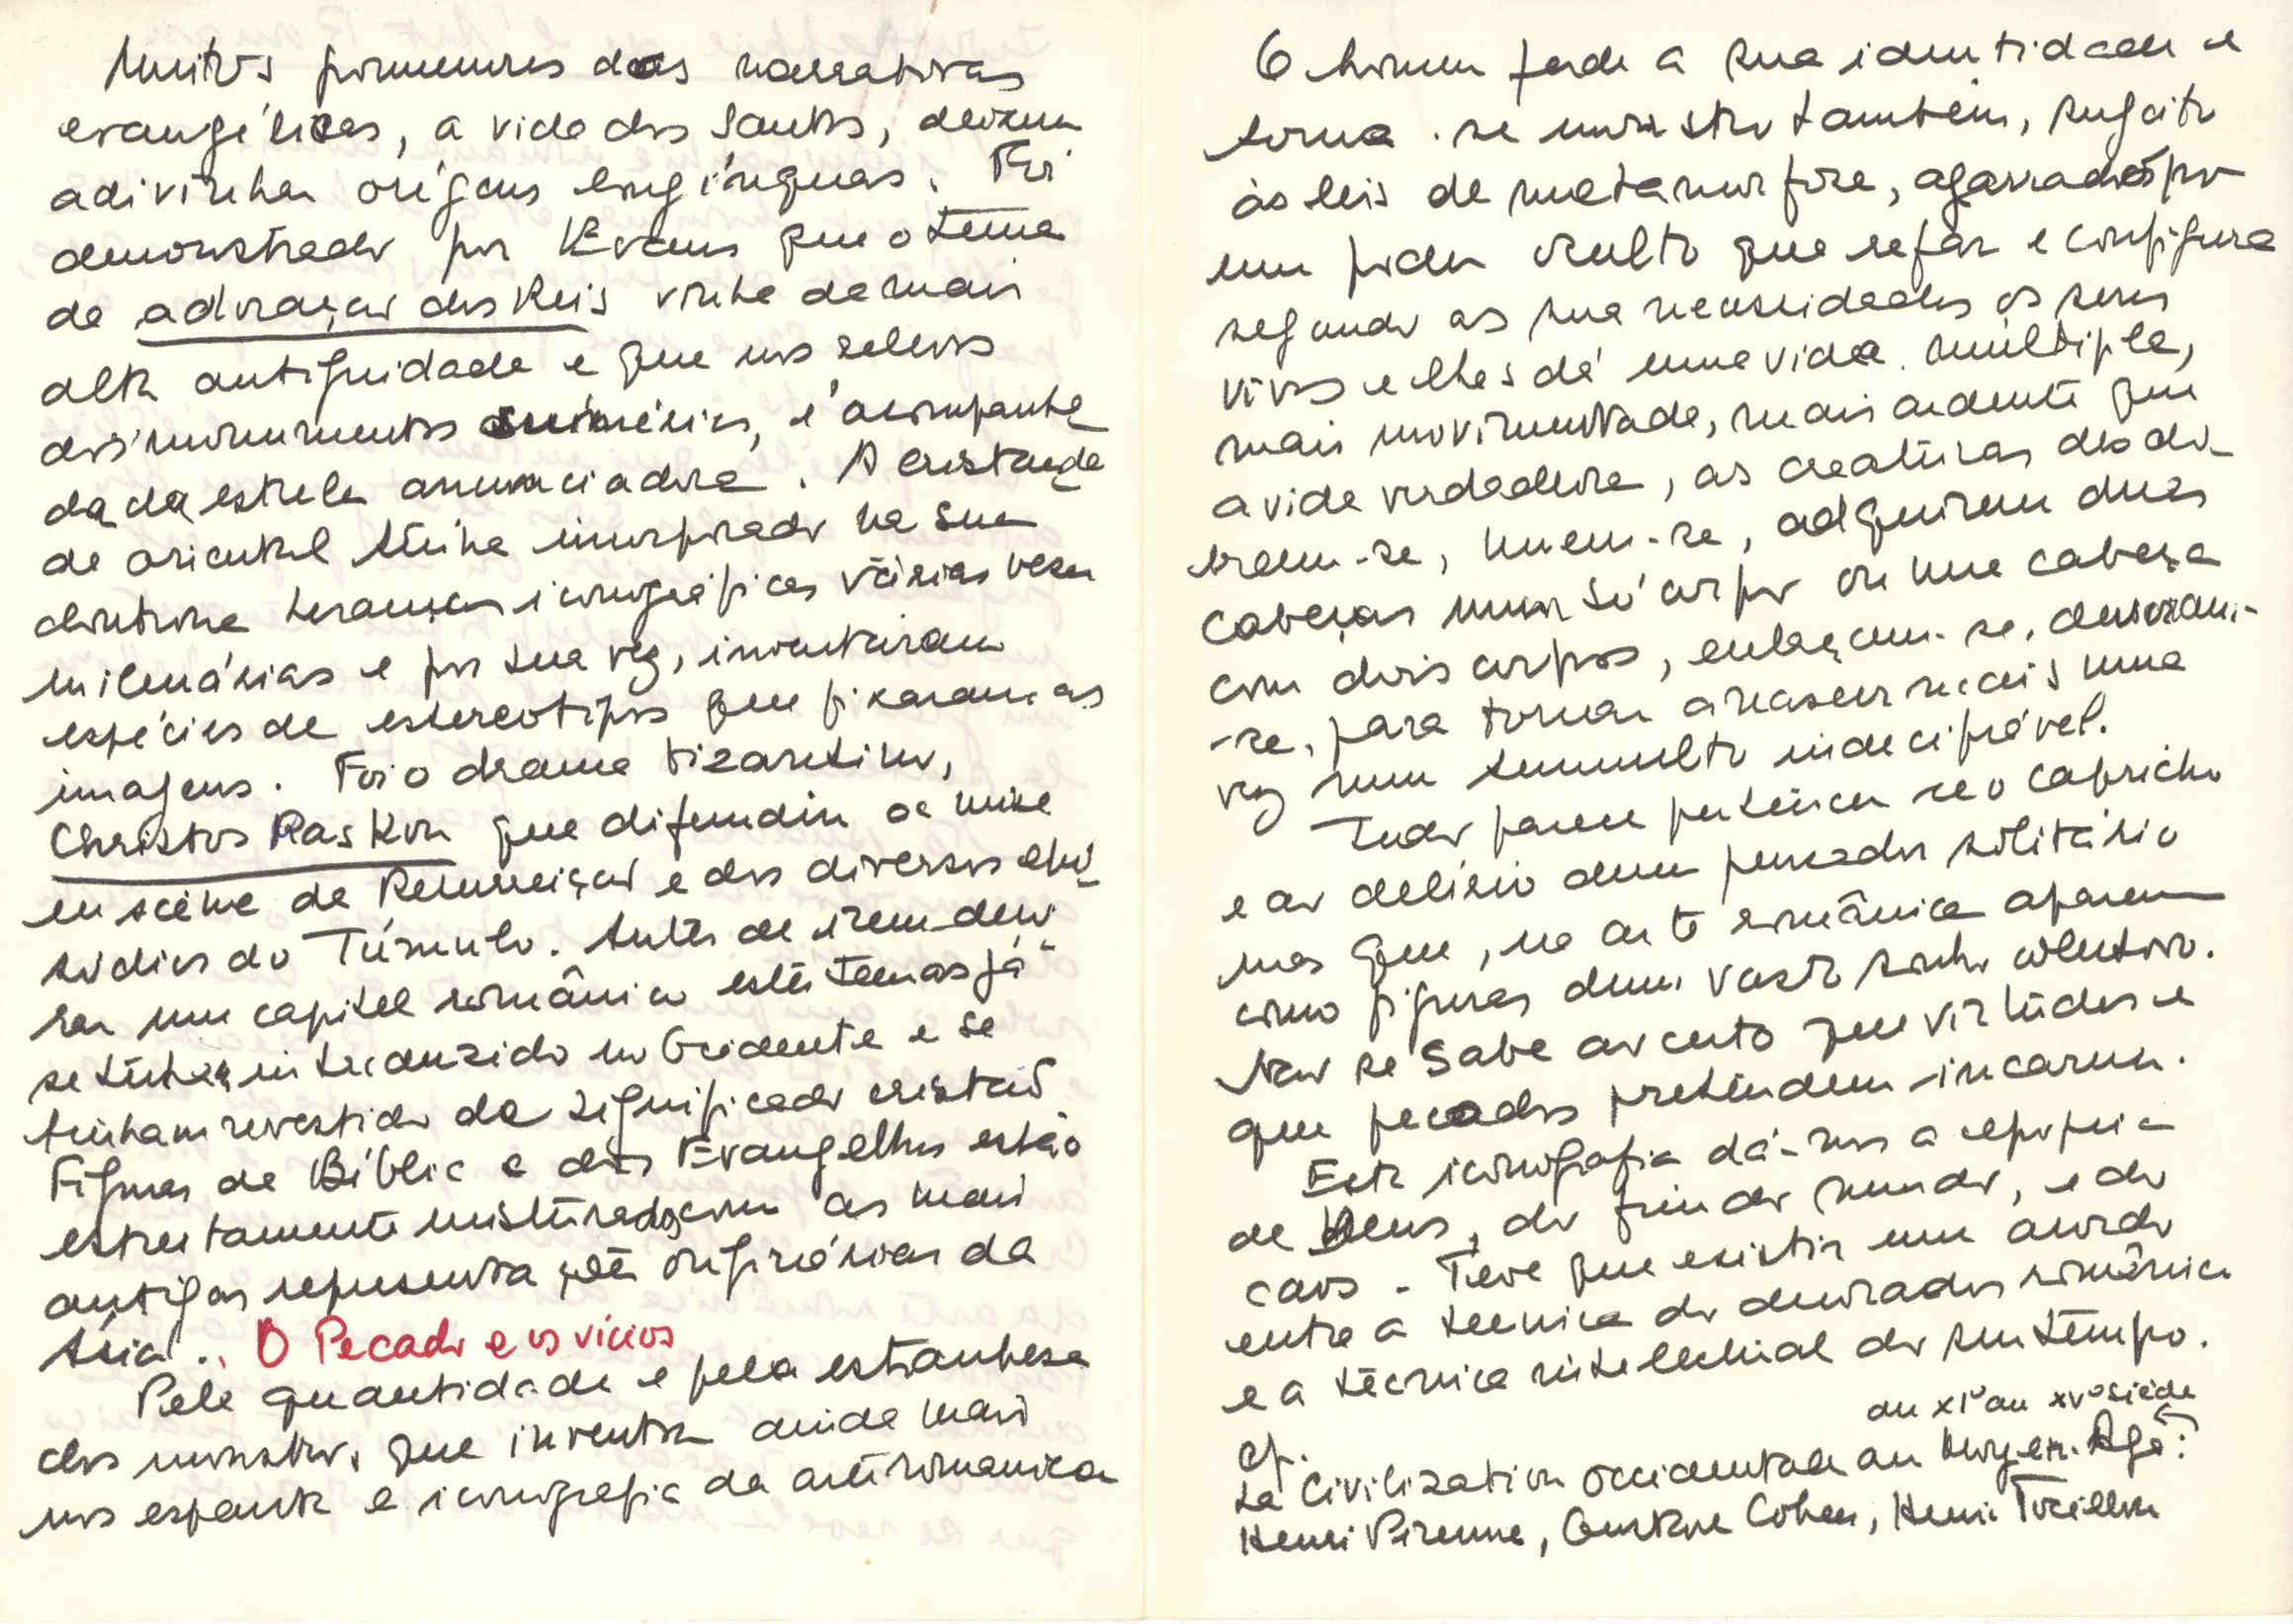 Muitos pormenores das narrativas
evangélicas, a vida dos Santos, deixam
adivinhar origens longínquas. Foi
demonstrado por Evans que o tema
da adoração dos Reis vinha da mais
alta antiguidade e que nos relevos
dos monumentos sumérios, é acompanha
da da estrela anunciadora. A cristanda
de oriental tinha incorporado na sua
doutrina heranças iconográficas várias vezes
milenárias e por sua vez, inventaram
espécies de estereotipos que fixaram as
imagens. Foi o drama bizantino,
Christos Paskon que difundiu a mise
en scène da Ressurreição e dos diversos epi
sódios do Túmulo. Antes de irem deco
rar um capitel românico estes temas já
se tinham introduzido no Ocidente e se
tinham revestido de significado cristão
Figuras da Bíblia e dos Evangelhos estão
estreitamente misturadas com as mais
antigas representações originárias da
Ásia. O Pecado e os vícios
Pela quantidade e pela estranhesa
dos monstros que inventa ainda mais
nos espanta a iconografia da arte romanica
O homem perde a sua identidade e
torna-se monstro também, sugeito
às leis de metamorfose, agarrados por
um poder oculto que refaz e configura
segundo as sua necessidades os seres
vivos e lhes dá uma vida múltipla,
mais movimentada, mais ardente que
a vida verdadeira, as creaturas desdo
bram-se, unem-se, adquirem duas
cabeças num só corpo ou uma cabeça
com dois corpos, enlaçam-se, devoram-
-se, para tornar a nascer mais uma
vez num tumulto indecifrável.
Tudo parece pertencer ao capricho
e ao delírio dum pensador solitário
mas que, na arte românica aparecem
como figuras dum vasto sonho colectivo.
Não se sabe ao certo que virtudes e
que pecados pretendem incarnar.
Esta iconografia dá-nos a epopeia
de Deus, do fim do mundo, e do
caos. Teve que existir um acordo
entre a tecnica do decorador românico
e a técnica intelectual do seu tempo.
au XIº au XVº siècle
cf.
La Civilization Occidentale au Moyen Age:
Henri Pirenne, Gustave Cohen, Henri Focillon